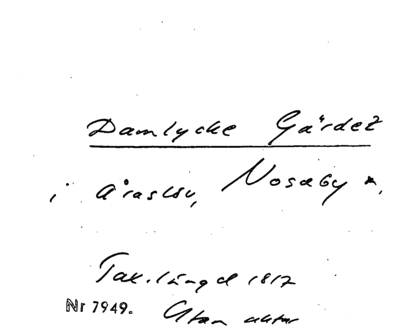 Damlycke Gärdet
i Åraslöv, Nosaby s,
Tax.längd 1817
Nr 7949. Utan aktor